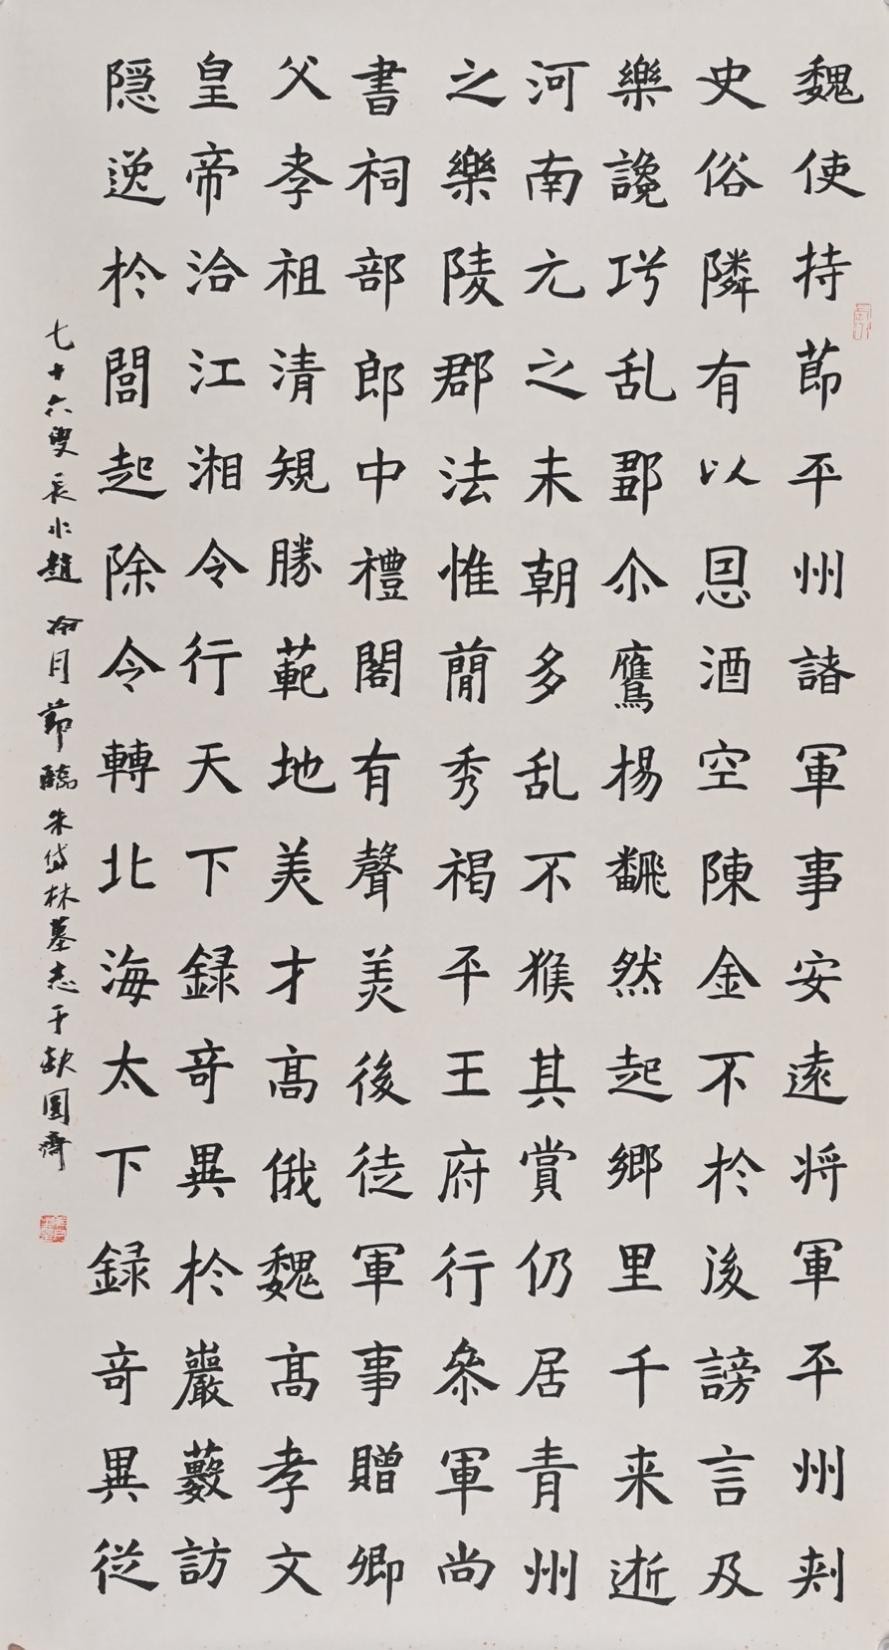 魏使持莭平州諸軍事安遠将軍平州刾
史俗隣有以恩酒空陳金不於後謗言及
樂讒巧乱鄙尒鷹楊飜然起鄉里千来逝
河南元之未朝多乱不猴其賞仍居青州
之樂陵郡法惟蕳秀褐平王府行叅軍尚
書祠部郎中禮閣有聲美後徒軍事贈卿
父孝祖清規勝範地美才高俄魏高孝文
皇帝洽江湘令行天下録竒異於巖藪訪
隠逸於閭起除令轉北海太下録竒異従
七十六叟長水趙冷月莭臨朱岱林墓志于缺圓齋